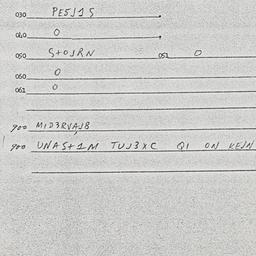 030 PE5J15
040 0
050 S+OJRN 051 0
060 0
061 0
900 MID3RVAJB
900 UNAS+1M TUJ3XC QI ON KEJN